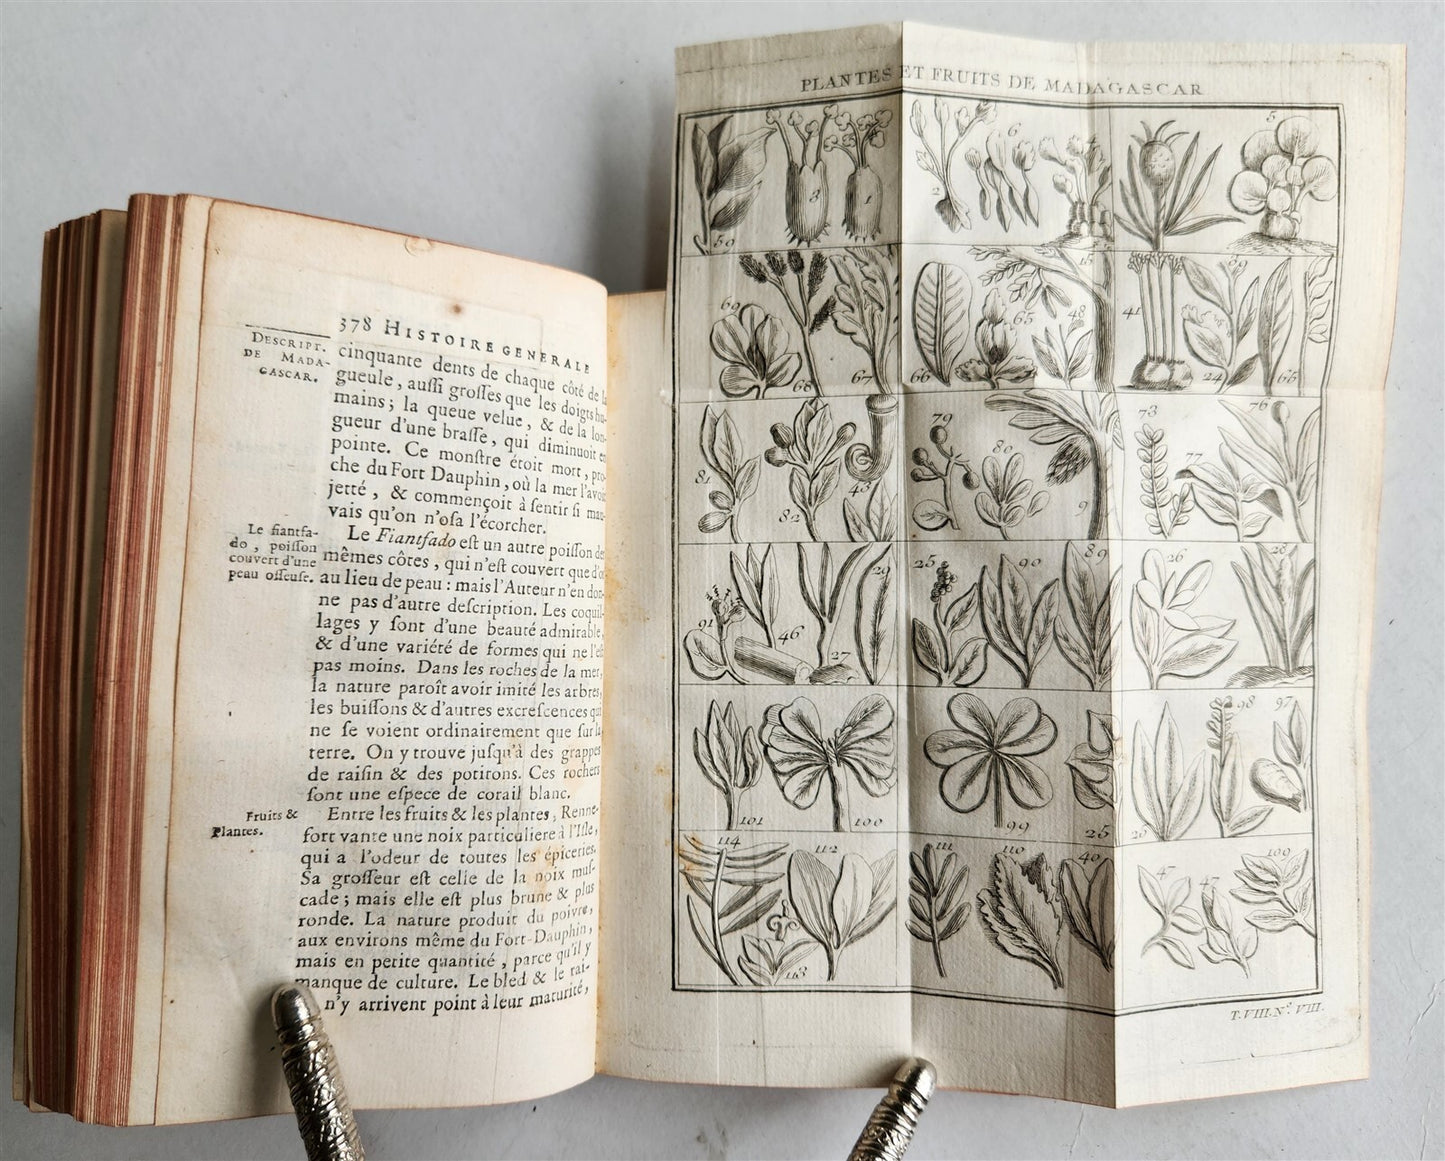 378 HISTOIRE GENERALE
DESCRIPT.
DE MADA-
GASCAR.
cinquante dents de chaque côté de la
gueule, auſſi groſſes que les doigts hu-
mains; la queue velue, & de la lon-
gueur d'une braſſe, qui diminuoit en
pointe. Ce monſtre étoit mort, pro-
che du Fort Dauphin, où la mer l'avoit
jetté, & commençoit à ſentir ſi mau-
vais qu'on n'oſa l'écorcher.
Le fiantſa-
do, poiſſon
couvert d'une
peau oſſeuſe.
Le Fiantſado eſt un autre poiſſon des
mêmes côtes, qui n'eſt couvert que d'os
au lieu de peau: mais l'Auteur n'en don-
ne pas d'autre deſcription. Les coquil-
lages y ſont d'une beauté admirable,
& d'une variété de formes qui ne l'eſt
pas moins. Dans les roches de la mer,
la nature paroît avoir imité les arbres,
les buiſſons & d'autres excreſcences qui
ne ſe voient ordinairement que ſur la
terre. On y trouve juſqu'à des grappes
de raiſin & des potirons. Ces rochers
ſont une eſpece de corail blanc.
Fruits &
Plantes.
Entre les fruits & les plantes, Renne-
fort vante une noix particuliere à l'Iſle,
qui a l'odeur de toutes les épiceries.
Sa groſſeur eſt celle de la noix muſ-
cade; mais elle eſt plus brune & plus
ronde. La nature produit du poivre,
aux environs même du Fort-Dauphin,
mais en petite quantité, parce qu'il y
manque de culture. Le bled & le rai-
n'y arrivent point à leur maturité,
PLANTES ET FRUITS DE MADAGASCAR
59 3 1 2 6 4 5
69 68 67 66 65 48 15 41 89 24 65
81 82 43 79 80 9 73 77 76
91 46 27 29 25 90 89 26 28
101 100 99 25 26 98 97
114 113 112 111 110 40 47 47 109
T.VIII.N°. VIII.